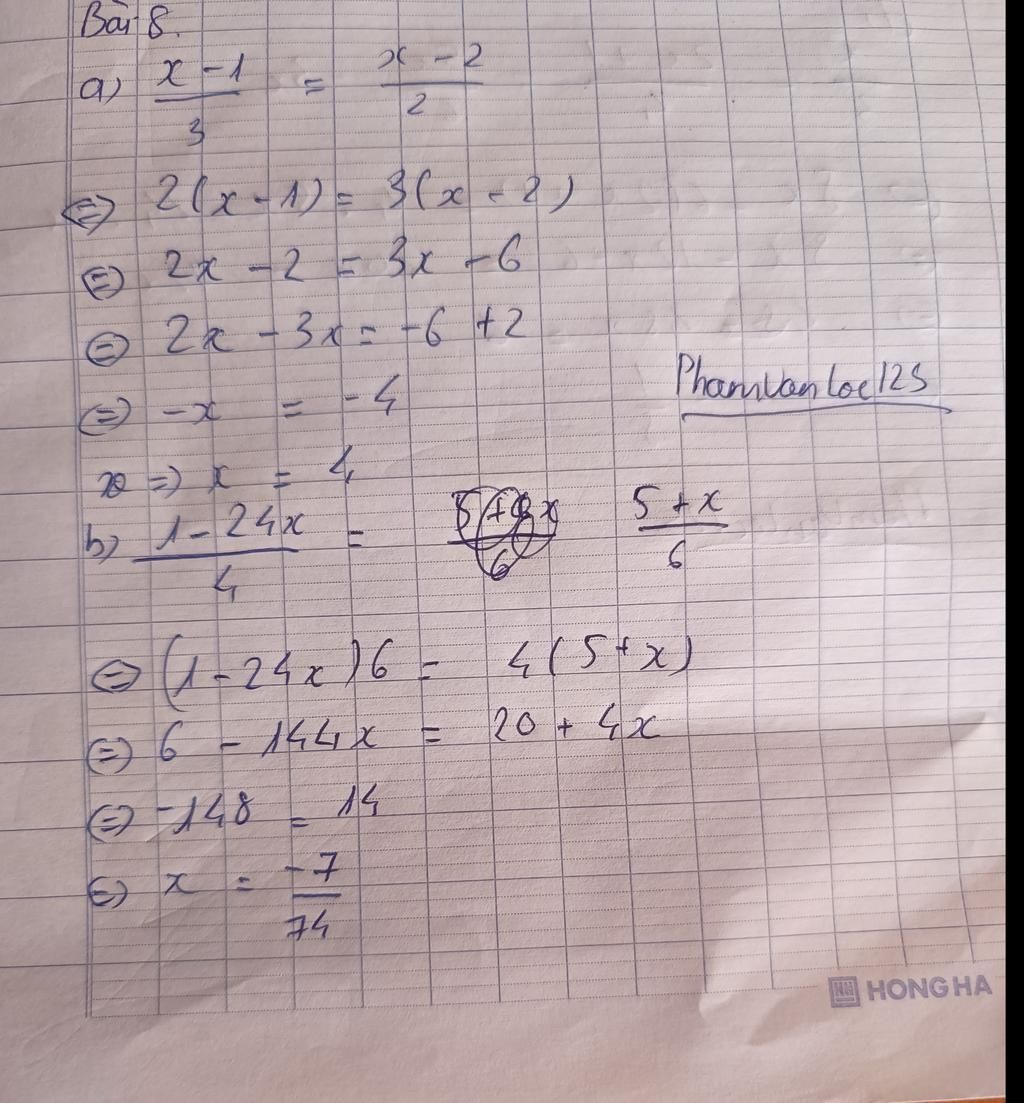 Bài 8.
a) x - 1 / 3 = x - 2 / 2
<=> 2(x - 1) = 3(x - 2)
<=> 2x - 2 = 3x - 6
<=> 2x - 3x = -6 + 2
<=> -x = -4
PhamVanLoc123
=> x = 4
b) 1 - 24x / 4 = 5 + x / 6
<=> (1 - 24x)6 = 4(5 + x)
<=> 6 - 144x = 20 + 4x
<=> -148 = 14
<=> x = -7 / 74
HONG HA